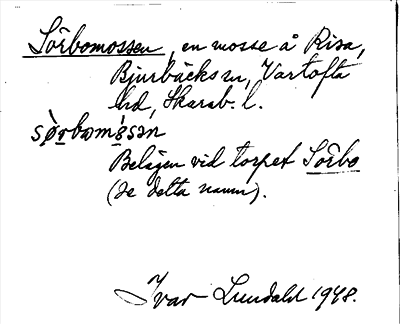 Sörbomossen, en mosse å Risa,
Bjurbäcks sn, Vartofta
hd, Skarab. l.
sø̀rbomå̀sən
Belägen vid torpet Sörbo
(se detta namn).
Ivar Lundahl 1948.